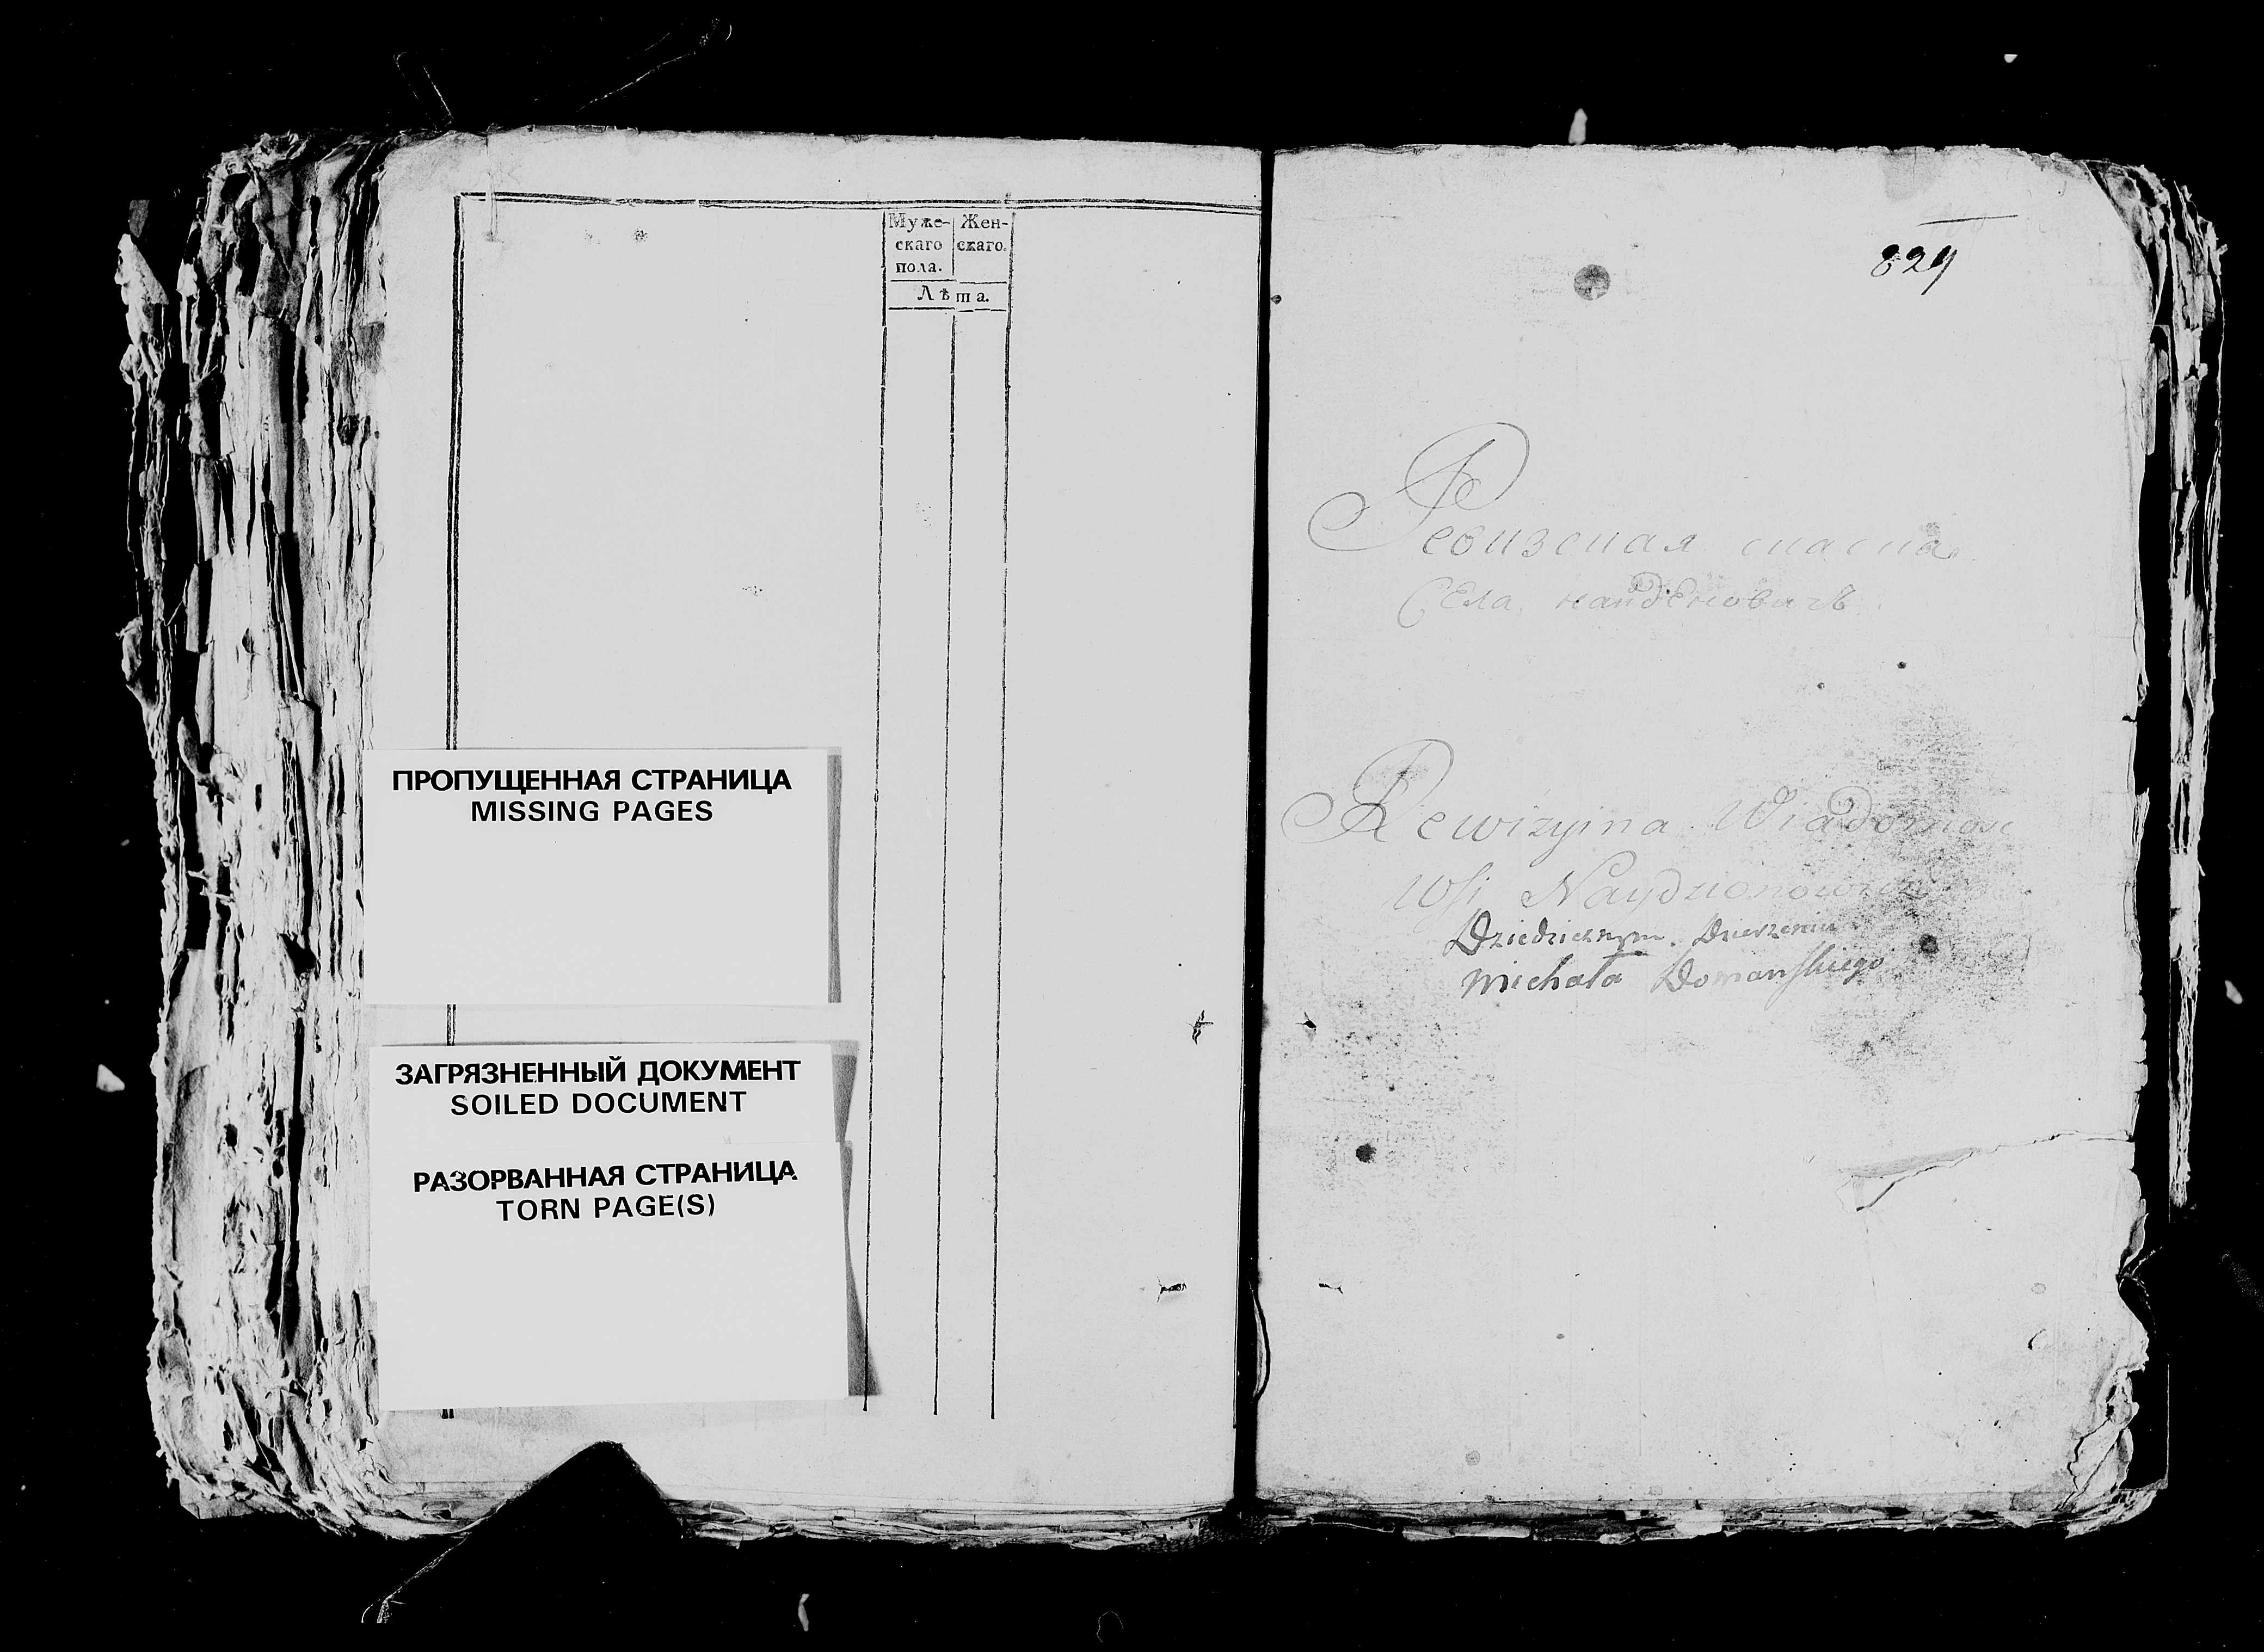 Муже-
скаго
пола.
Жен-
скаго.
Лѣта.
ПРОПУЩЕННАЯ СТРАНИЦА
MISSING PAGES
ЗАГРЯЗНЕННЫЙ ДОКУМЕНТ
SOILED DOCUMENT
РАЗОРВАННАЯ СТРАНИЦА
TORN PAGE(S)
829
Ревизская
Села
Rewizyina Wiadomosc
Wsi
Dziedzicznym
Michała Domanskiego